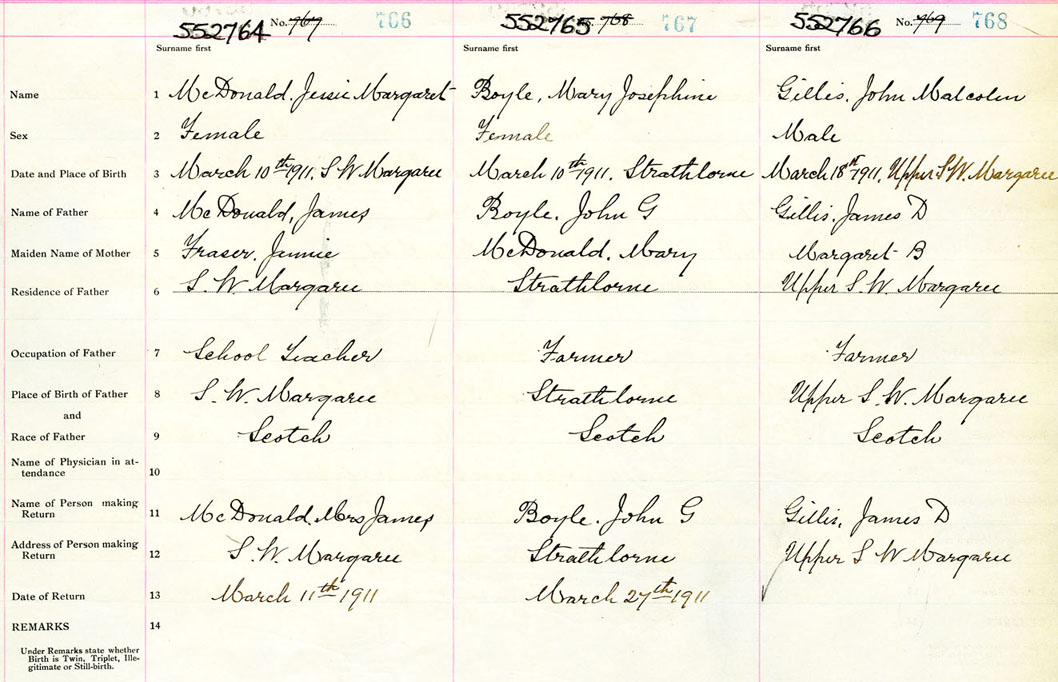 552764 No. 767 766 552765 768 767 552766 No. 769 768
Surname first Surname first Surname first
Name 1 McDonald, Jessie Margaret Boyle, Mary Josephine Gillis, John Malcolm
Sex 2 Female Female Male
Date and Place of Birth 3 March 10th 1911, S W Margaree March 10th 1911, Strathlorne March 18 1911, Upper S.W. Margaree
Name of Father 4 McDonald, James Boyle, John G Gillis, James D
Maiden Name of Mother 5 Fraser, Jennie McDonald, Mary Margaret B
Residence of Father 6 S. W. Margaree Strathlorne Upper S. W. Margaree
Occupation of Father 7 School Teacher Farmer Farmer
Place of Birth of Father 8 S. W. Margaree Strathlorne Upper S. W. Margaree
and
Race of Father 9 Scotch Scotch Scotch
Name of Physician in at-
tendance 10
Name of Person making
Return 11 McDonald, Mrs James Boyle, John G Gillis, James D
Address of Person making
Return 12 S. W. Margaree Strathlorne Upper S W Margaree
Date of Return 13 March 11th 1911 March 27th 1911
REMARKS 14
Under Remarks state whether
Birth is Twin, Triplet, Ille-
gitimate or Still-birth.